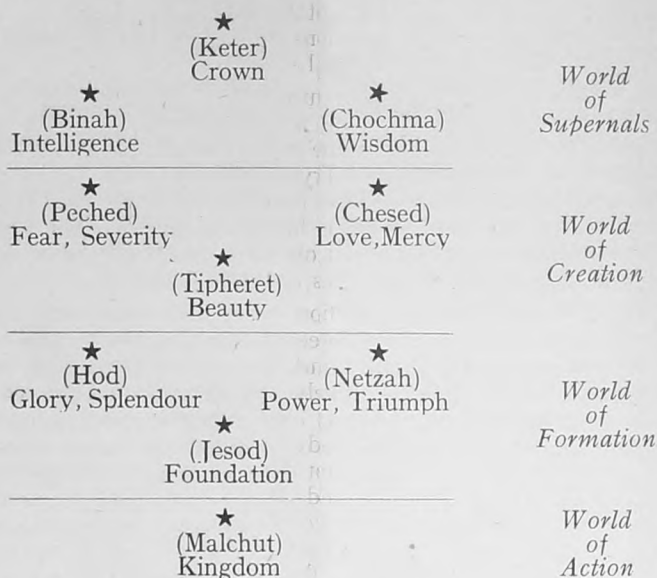 ★
(Keter)
Crown
★ ★
(Binah) (Chochma)
Intelligence Wisdom
World
of
Supernals
★ ★
(Peched) (Chesed)
Fear, Severity Love, Mercy
★
(Tipheret)
Beauty
World
of
Creation
★ ★
(Hod) (Netzah)
Glory, Splendour Power, Triumph
★
(Jesod)
Foundation
World
of
Formation
★
(Malchut)
Kingdom
World
of
Action